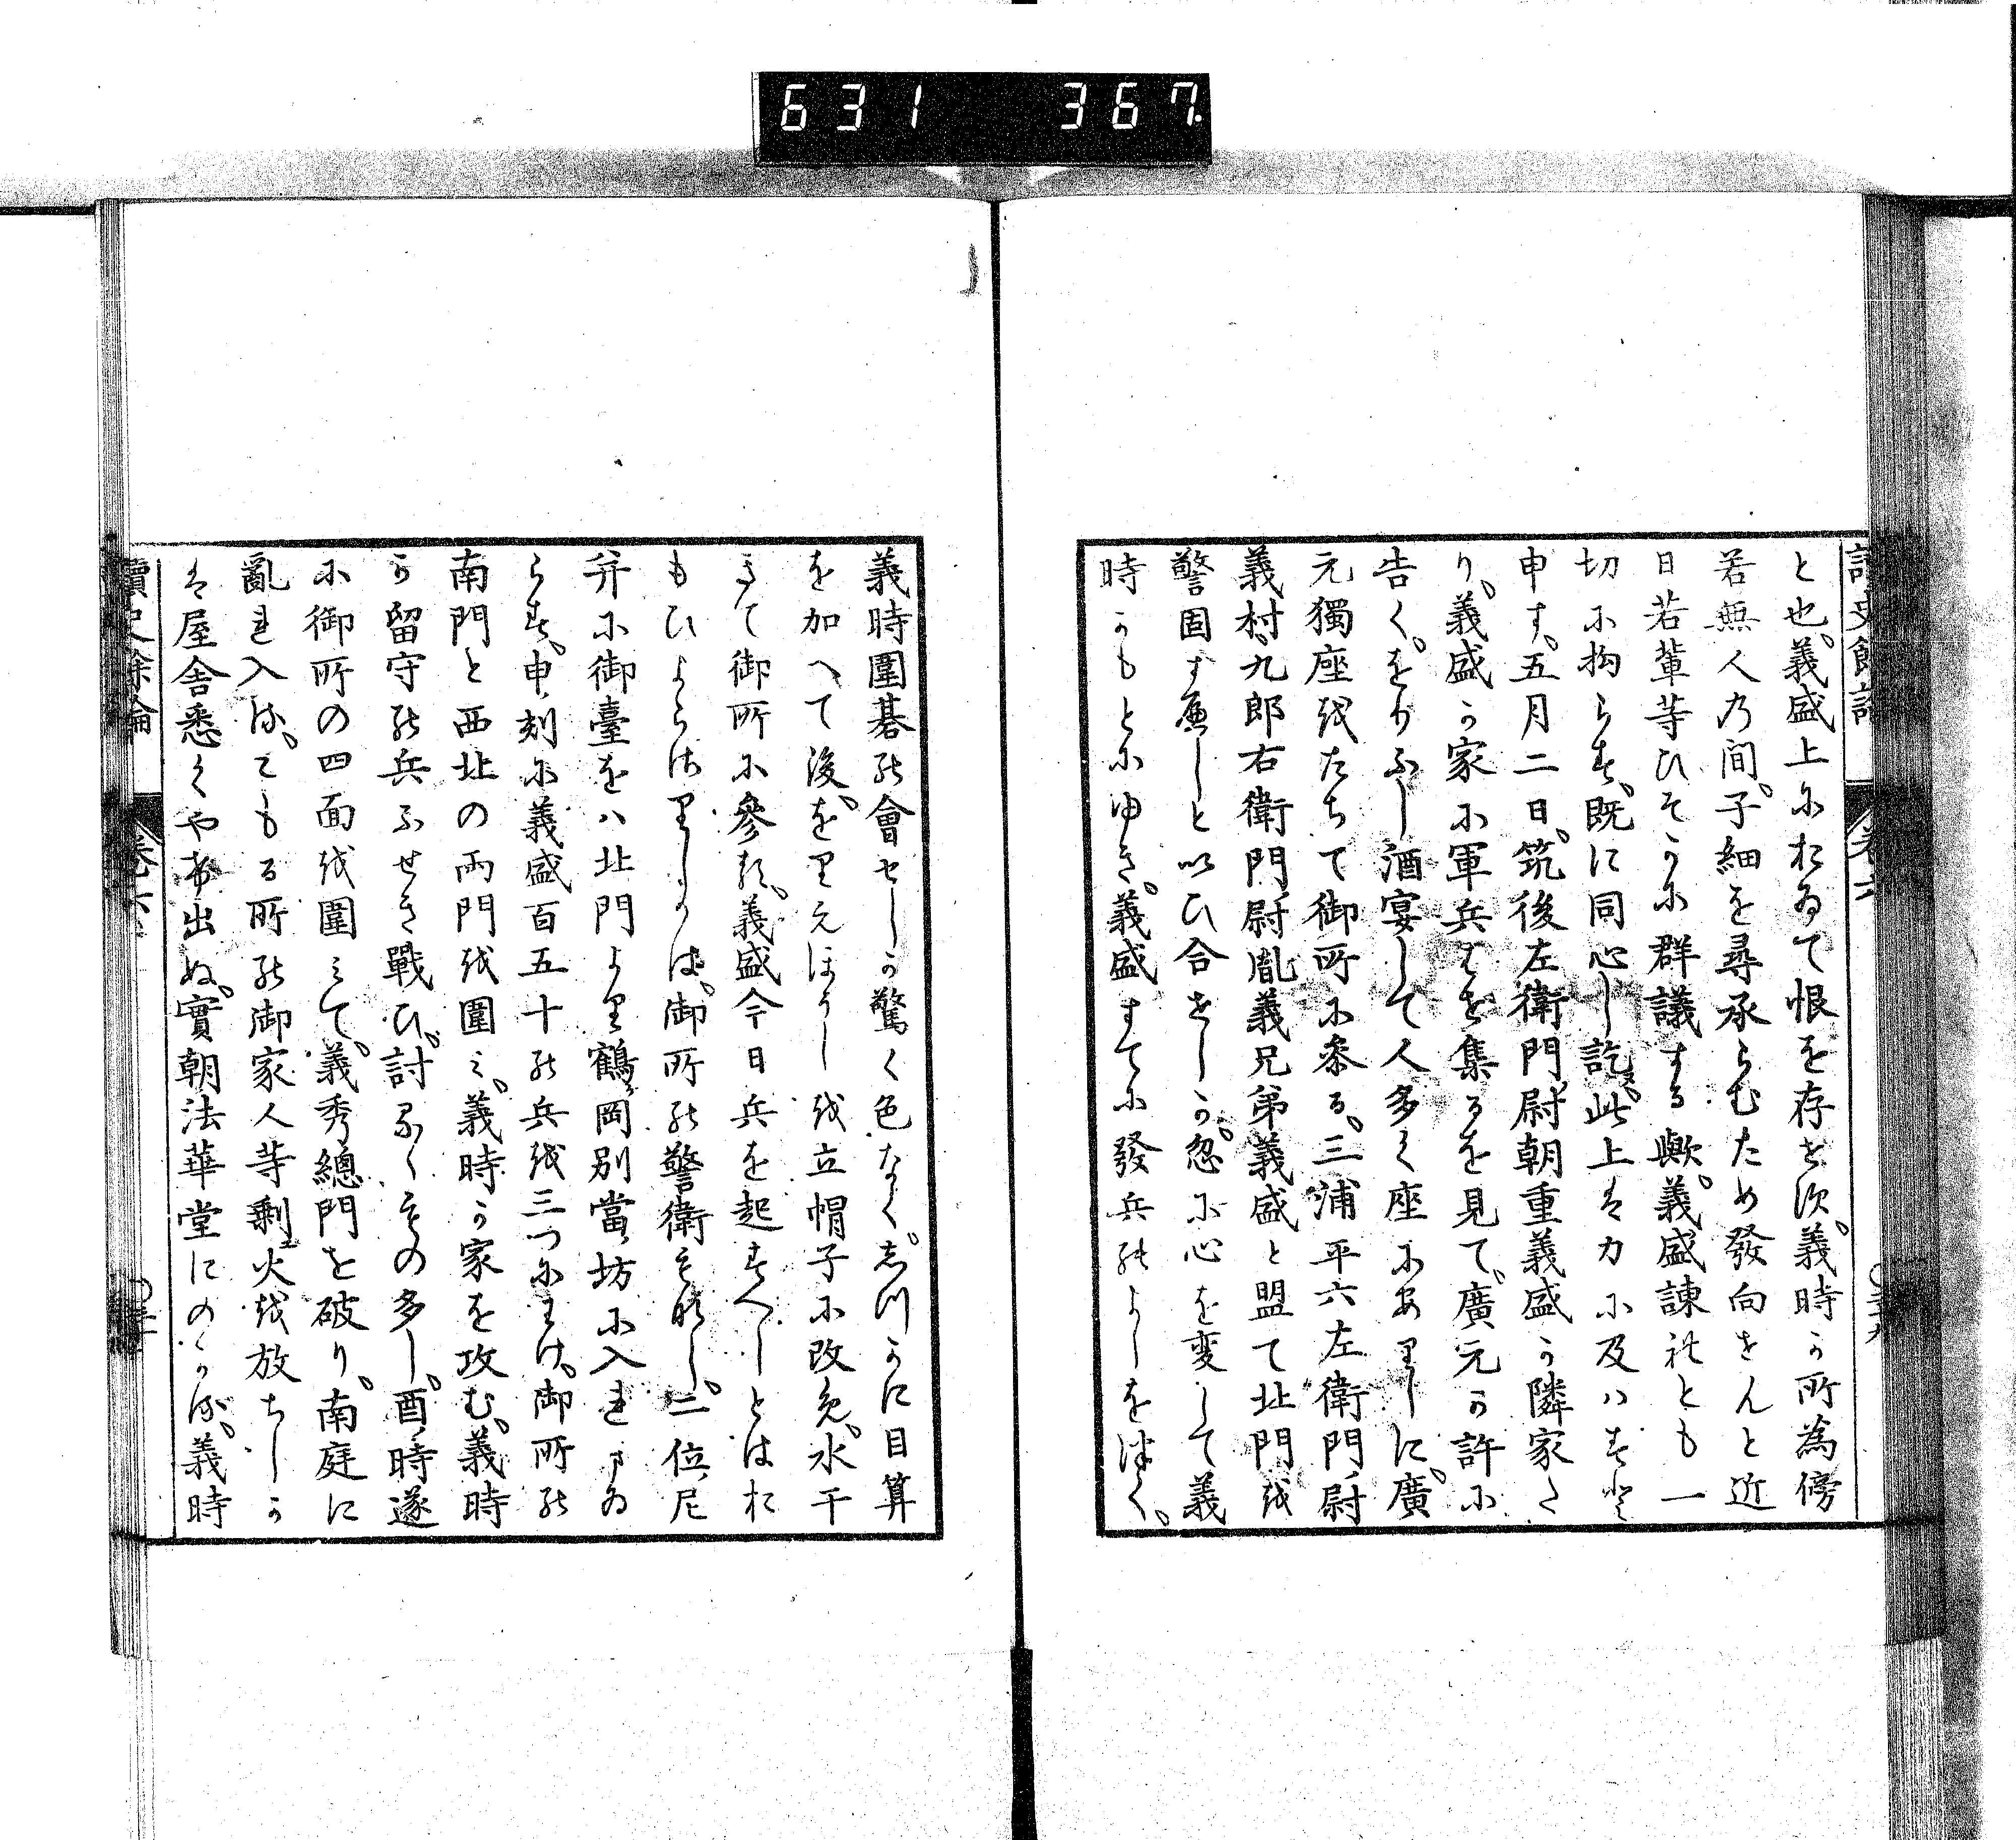 631 367
と也。義盛上におゐて恨を存せす。義時か所為傍
若無人の間。子細を尋承らむため發向せんと近
日若輩等ひそかに群議する歟。義盛諫れとも一
切に拘らす。既に同心し訖。此上は力に及ハすと
申す。五月二日。筑後左衛門尉朝重義盛か隣家た
り。義盛か家に軍兵はせ集るを見て。廣元か許に
告く。をりふし酒宴して人多く座にありしに。廣
元獨座をたちて御所に参る。三浦平六左衛門尉
義村。九郎右衛門尉胤義兄弟義盛と盟て北門を
警固すへしといひ合せしか。忽に心を変して義
時かもとにゆき。義盛すてに發兵のよしをつく。
義時圍碁の會せしか驚く色なく。しつかに目算
を加へて後。をりえほうしを立帽子に改め。水干
きて御所に參る。義盛今日兵を起すへしとはお
もひよらさりしかは。御所の警衛もなし。二位尼
并に御臺をハ北門より鶴岡別當坊に入れまゐ
らす。申刻に義盛百五十の兵を三つにわけ。御所の
南門と西北の両門を圍み。義時か家を攻む。義時
か留守の兵ふせき戰ひ。討るゝもの多し。酉時遂
に御所の四面を圍みて。義秀總門を破り。南庭に
亂れ入る。こもる所の御家人等剩火を放ちしか
は屋舎悉くやけ出ぬ。實朝法華堂にのかる。義時
讀史餘論 卷六